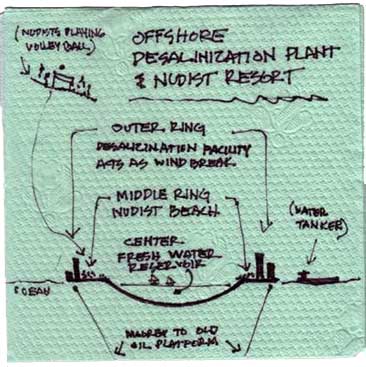 (NUDISTS PLAYING
VOLLEY BALL)
OFFSHORE
DESALINIZATION PLANT
& NUDIST RESORT
OUTER RING
DESALINIZATION FACILITY
ACTS AS WIND BREAK
MIDDLE RING
NUDIST BEACH
CENTER
FRESH WATER
RESERVOIR
(WATER
TANKER)
OCEAN
MOORED TO OLD
OIL PLATFORM